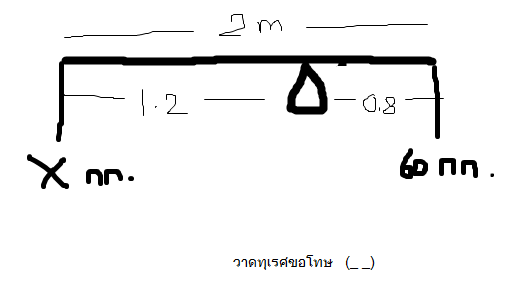 2 m
1.2 0.8
X กก. 60 กก.
วาดทุเรศขอโทษ (_ _)